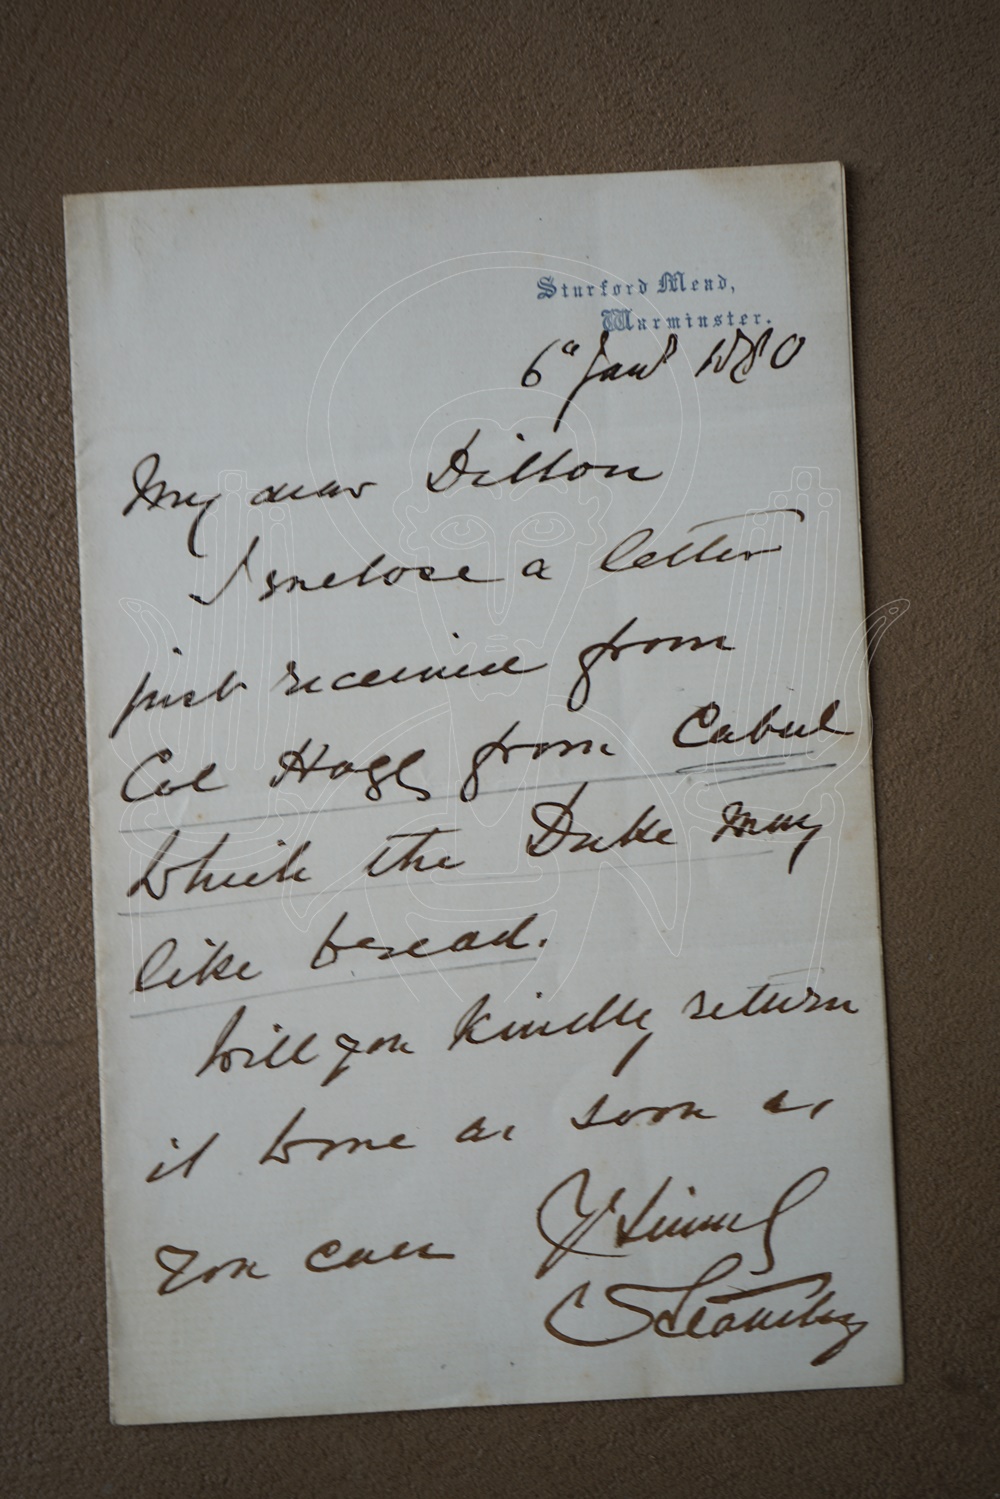 Sturford Mead,
Warminster.
6th Jany 1880
My dear Dillon
I enclose a letter
just received from
Col Hogg from Cabul
which the Duke may
like to read.
Will you kindly return
it to me as soon as
you can Yrs Sincerely